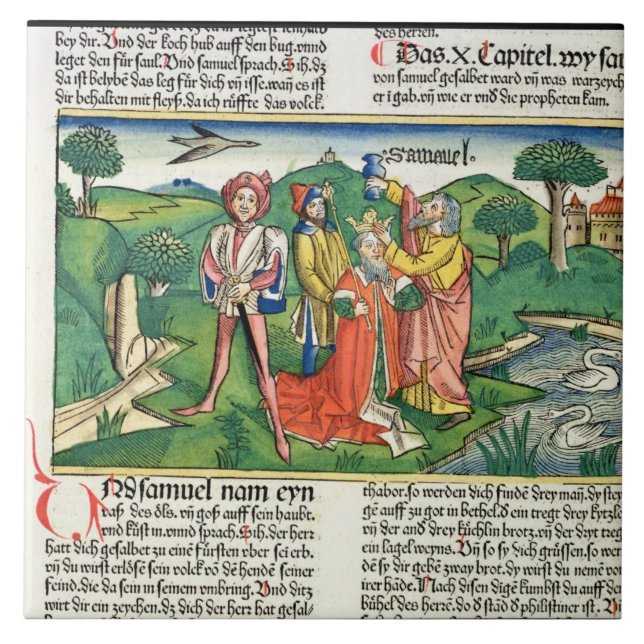 bey dir. Und der koch hub auff den bug. vnnd
leget den für saul. Und samuel sprach. Sih. dz
da ist belybē das leg für dich vñ isse. wañ es ist
dir behalten mit fleyß. da ich rüffte das volck.
des herren.
Das. X. Capitel. wy sau
von samuel gesalbet ward vñ was warzeych
er i gab. vñ wie er vnd die propheten kam.
Samuel.
UNd samuel nam eyn
vaß des öls. vñ goß auff sein haubt.
vnnd küst in. vnnd sprach. Sih. der herr
hatt dich gesalbet zu einē fürsten vber sei erb.
vñ du wirst erlösē sein volck vō dē hendē seiner
feind. die da sein in seinem vmbring. Und ditz
wirt dir ein zeychen. dz dich der herr hat gesal-
thabor. so werden dich findē drey mañ. dy stey
gē auff zu got in bethel. đ ein tregt drey kytzle
vñ der and̄ drey küchlin brotz. vñ der dryt treg
ein lagel weyns. Vñ so sy dich grüssen. so wer
den sy dir gebē zway brot. dy würst du nemē vō
irer hāde. Nach disen digē kumbst du auff den
bühel des herrē. do d̄ stād d̄ philistiner ist. Un